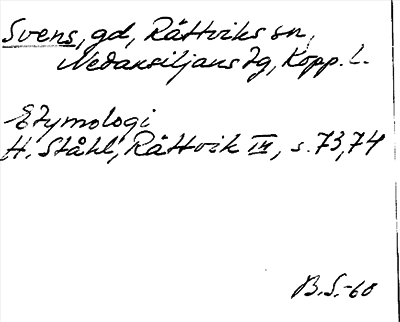 Svens, gd, Rättviks sn,
Nedansiljans tg, Kopp. l.
Etymologi
H. Ståhl, Rättvik III, s. 73, 74
B.S.-60